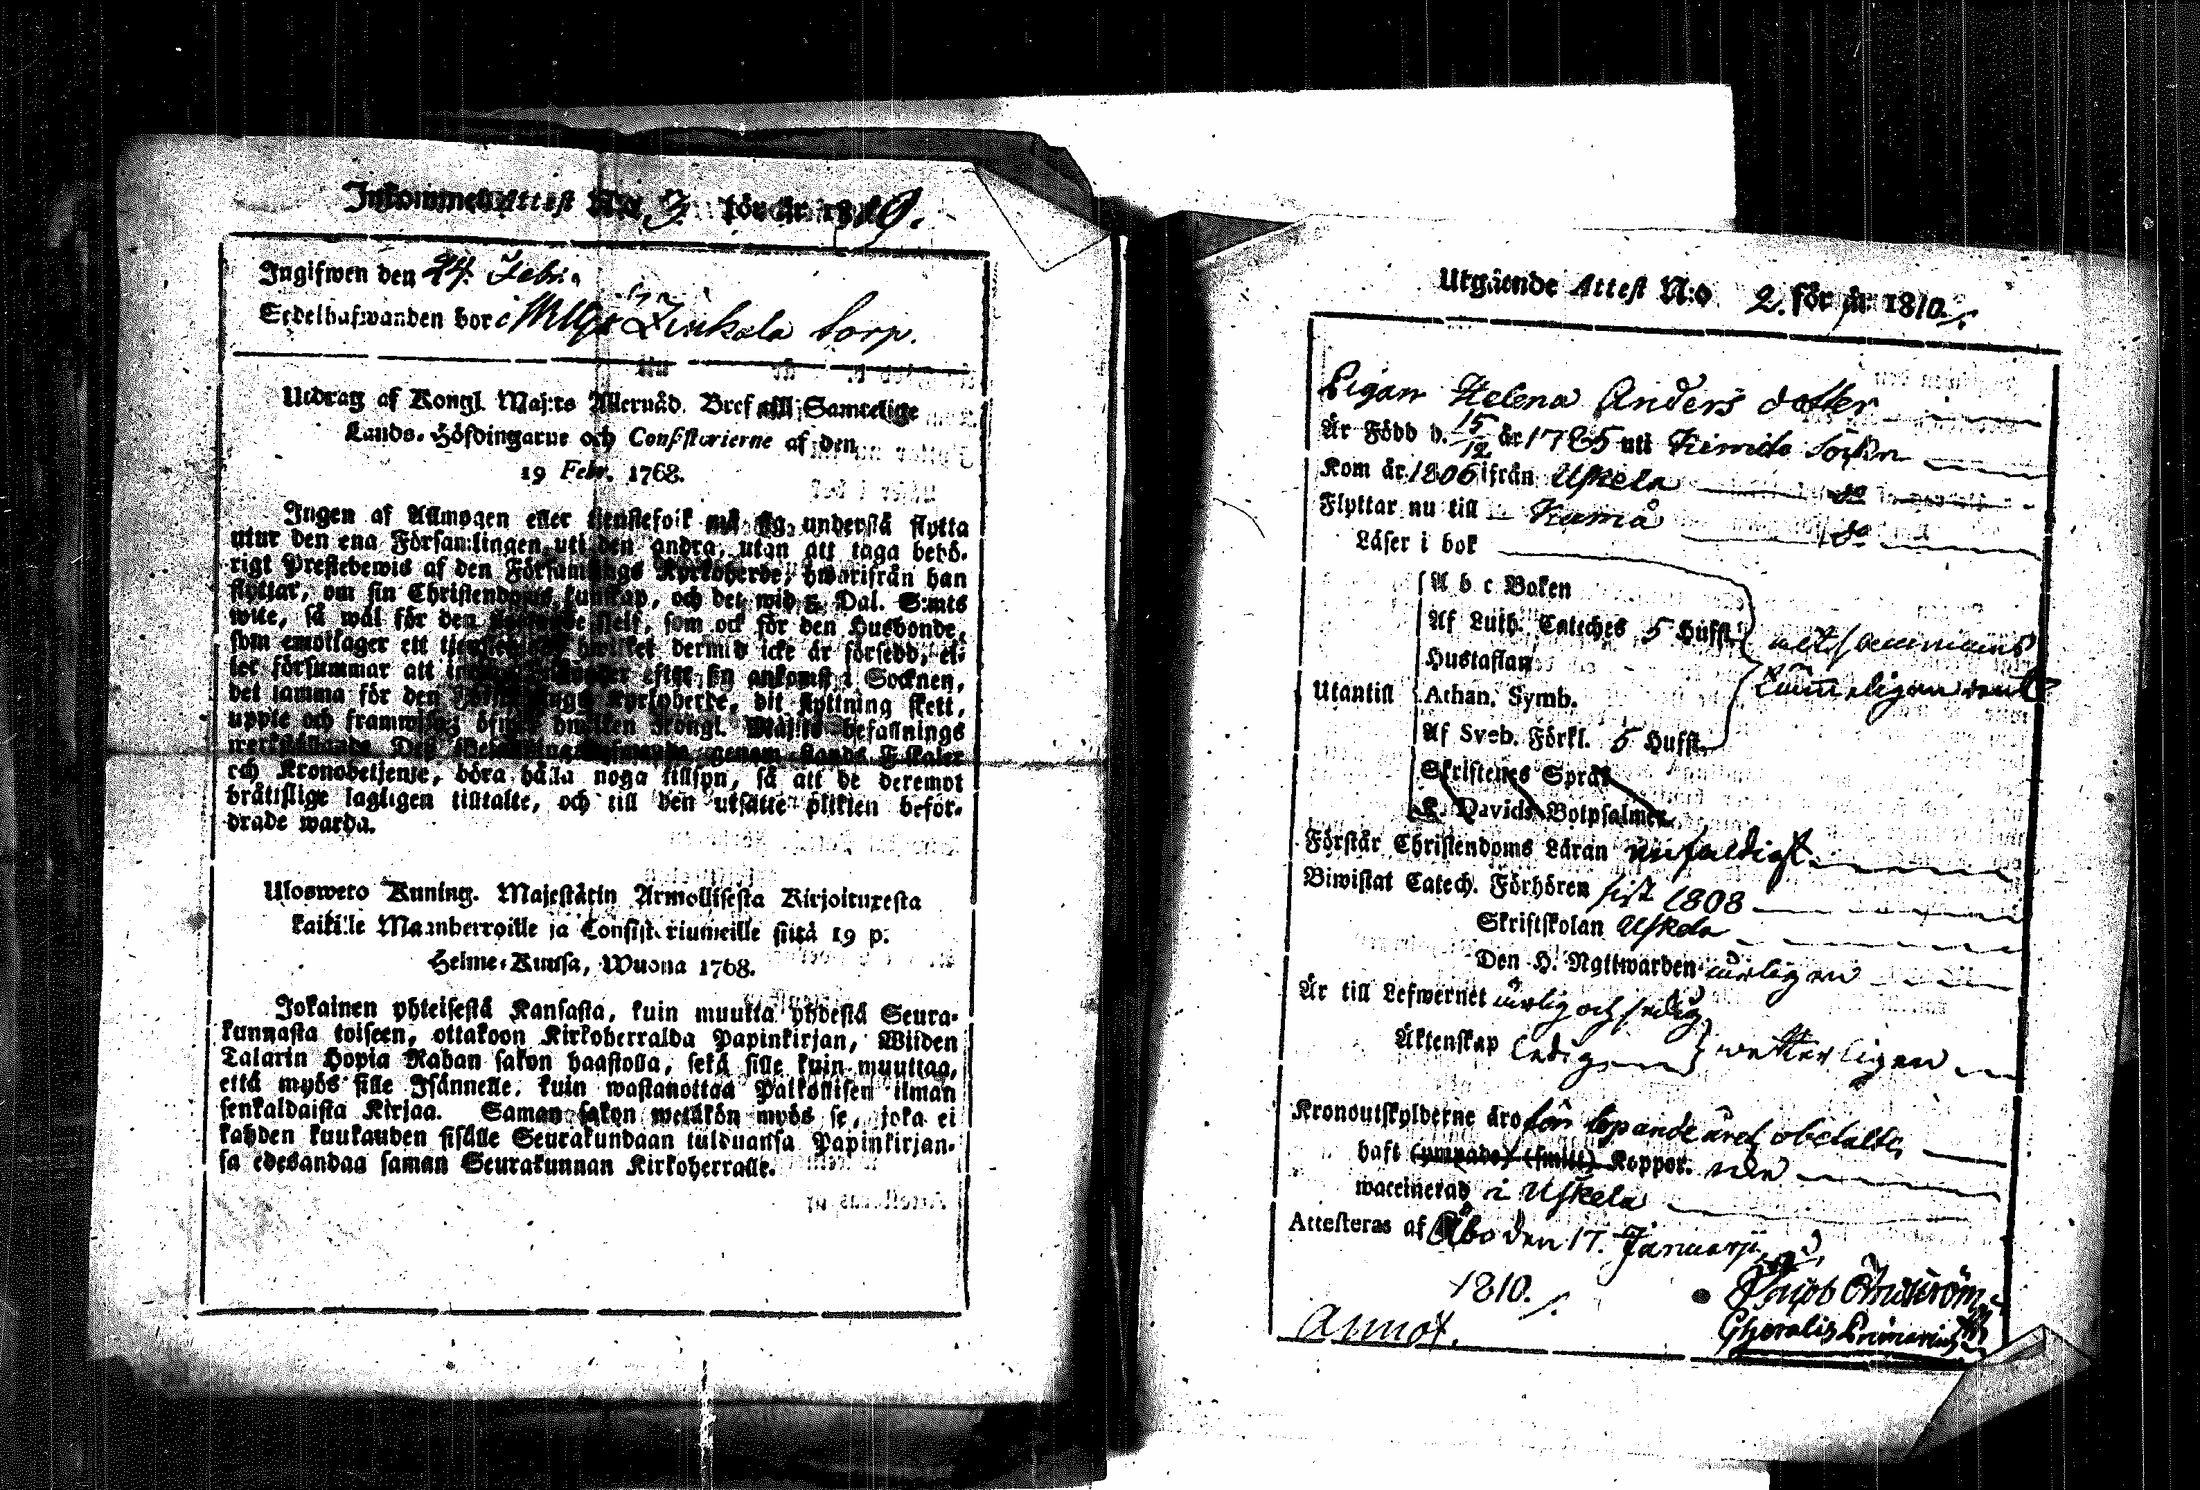 Inkommen Attest N:o 3 för år 1810.
Ingifwen den 24 Febr.
Sedelhafwanden bor i Zinkala torp.
Utdrag af Kongl. Maj:ts Allernåd. Bref till Samtelige
Lands-Höfdingarne och Consistorierne af den
19 Febr. 1768.
Ingen af Allmogen eller tjenstefolk må sig understå flytta
utur den ena Församlingen uti den andra, utan att taga behö-
rigt Prestebewis af den Församlings Kyrkoherde, hwarifrån han
flyttar, om sin Christendoms kunskap, och det wid 5. Dal. S:mts
wite, så wäl för den sielf, som ock för den Husbonde,
som emottager ett hwilket dermid icke är försedd, el-
ler försummar att efter sin ankomst i Socknen,
det samma för den Kyrkoherde, dit flyttning skett,
uppte och framwisa; öfwer hwilken Kongl. Maj:ts befallnings
werkställande Des genom Lands Fiskaler
och Kronobetjente, böra hålla noga tillsyn, så att de deremot
bråtslige lagligen tilltalte, och till den utsatte plikten beför-
drade warda.
Ulosweto Kuning. Majestätin Armollisesta Kirjoituxesta
kaikille Maanherroille ja Consistoriumeille siitä 19 p.
Helme-Kuusa, Wuona 1768.
Jokainen yhteisestä Kansasta, kuin muutta yhdestä Seura-
kunnasta toiseen, ottakoon Kirkoherralda Papinkirjan, Wiiden
Talarin Hopia Rahan sakon haastolla, sekä sille kuin muuttaa,
että myös sille Isännelle, kuin wastanottaa Palkollisen ilman
senkaldaista Kirjaa. Saman sakon wetäkön myös se, joka ei
kahden kuukauden sisälle Seurakundaan tulduansa Papinkirjan-
sa edesandaa saman Seurakunnan Kirkoherralle.
Utgående Attest N:o 2. för år 1810.
Pigan Helena Anders dotter
Är Född d. 15/12 år 1785 uti Kimito Sockn
Kom år 1806 ifrån Uskela do
Flyttar nu till Kumo do
Läser i bok
A b c Boken
Af Luth. Cateches 5 Hufst.
Hustaflan
Utantill Athan. Symb.
Af Sveb. Förkl. 5 Hufst.
Skriftenes Språk
K. Davids Botpsalmer
altsammans
Förstår Christendoms Läran enfaldigt.
Biwistat Catech. Förhören sist 1808
Skriftskolan Uskela
Den H. Nattwarden årligen
Är till Lefwernet ärlig och sedig
Äktenskap ledig wetterligen
Kronoutskylderne äro för löpande året obetalte
haft (ympade) (smitt) Koppor.
waccinerad i Uskela
Attesteras af Åbo den 17. Januarii
1810.
Jacob
Annot.